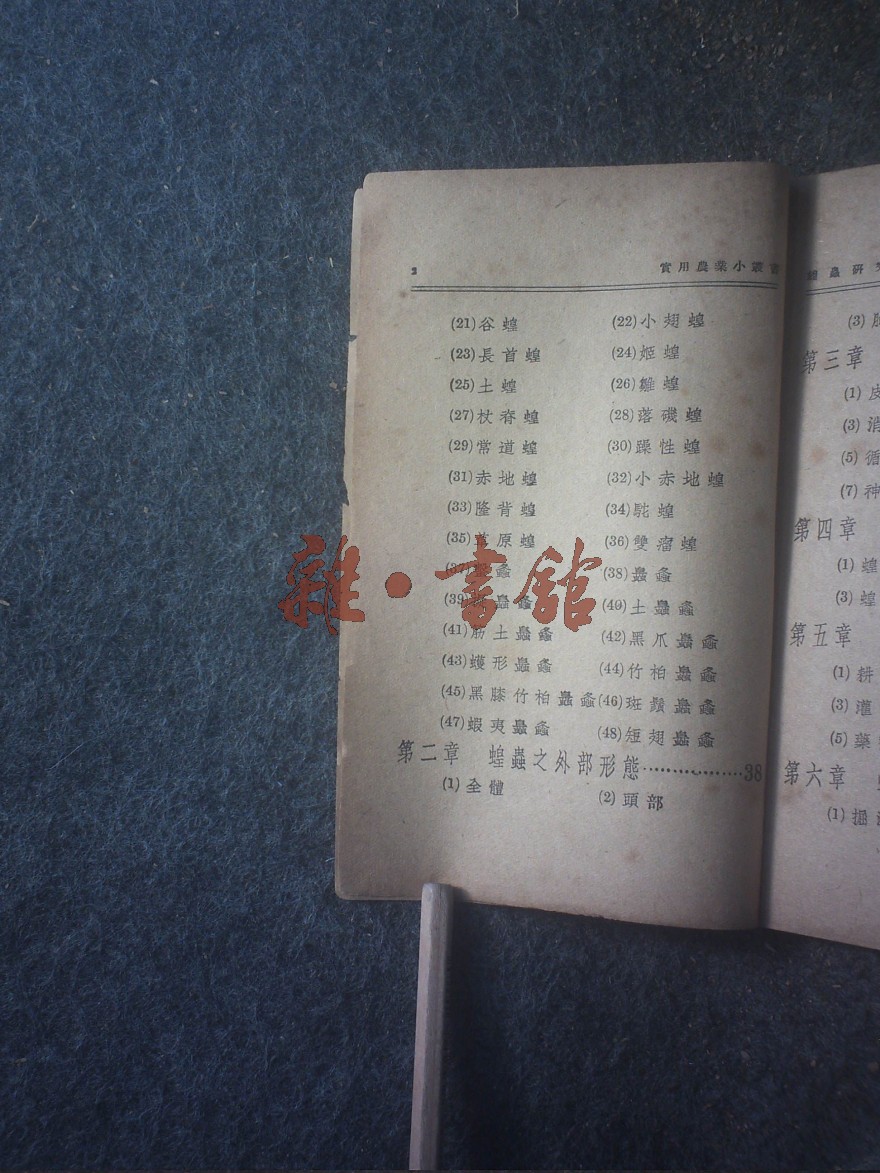 2 實用農業小叢書
(21)谷蝗 (22)小翅蝗
(23)長首蝗 (24)姬蝗
(25)土蝗 (26)雛蝗
(27)杖脊蝗 (28)落磯蝗
(29)常道蝗 (30)躁性蝗
(31)赤地蝗 (32)小赤地蝗
(33)隆背蝗 (34)駝蝗
(35)草原蝗 (36)雙瘤蝗
(37) 螽 (38)蟲螽
(39) 蟲螽 (40)土蟲螽
(41)筋土蟲螽 (42)黑爪蟲螽
(43)蠖形蟲螽 (44)竹柏蟲螽
(45)黑膝竹柏蟲螽 (46)斑鬚蟲螽
(47)蝦夷蟲螽 (48)短翅蟲螽
第二章 蝗蟲之外部形態 38
(1)全體 (2)頭部
蝗蟲研究
(3)
第三章
(1)皮
(3)消
(5)循
(7)神
第四章
(1)蝗
(3)蝗
第五章
(1)耕
(3)灌
(5)藥
第六章
(1)掘
雜·書館